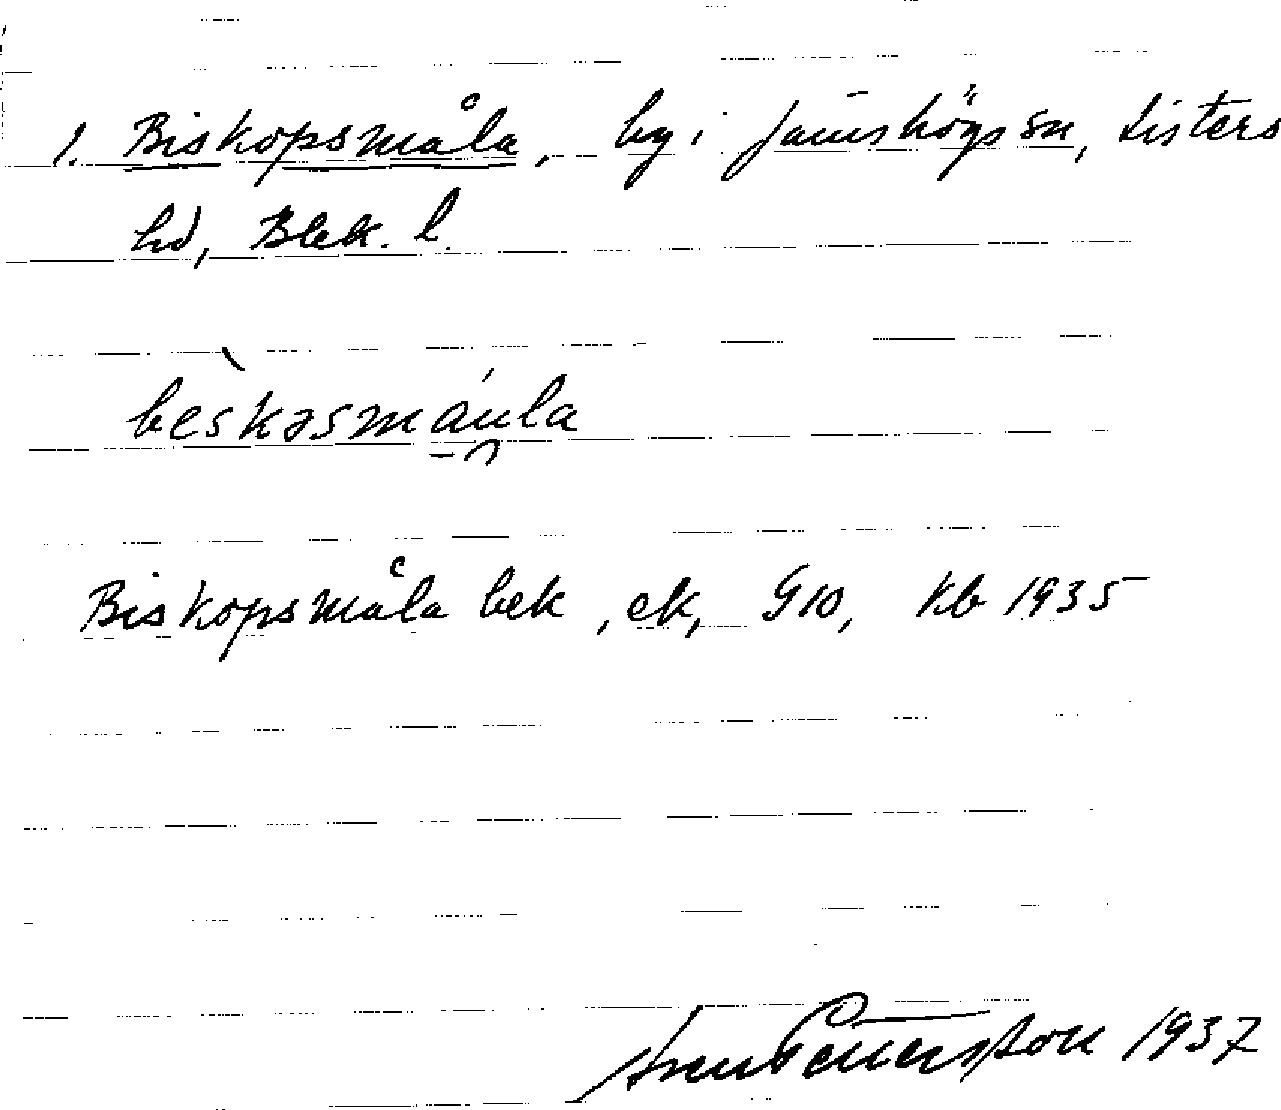 1. Biskopsmåla, by i Jämshögs sn, Listers
hd, Blek. l.
bès̀kəsmáula
Biskopsmåla bek, ek, G10, Kb 1935
Sven Petersson 1937